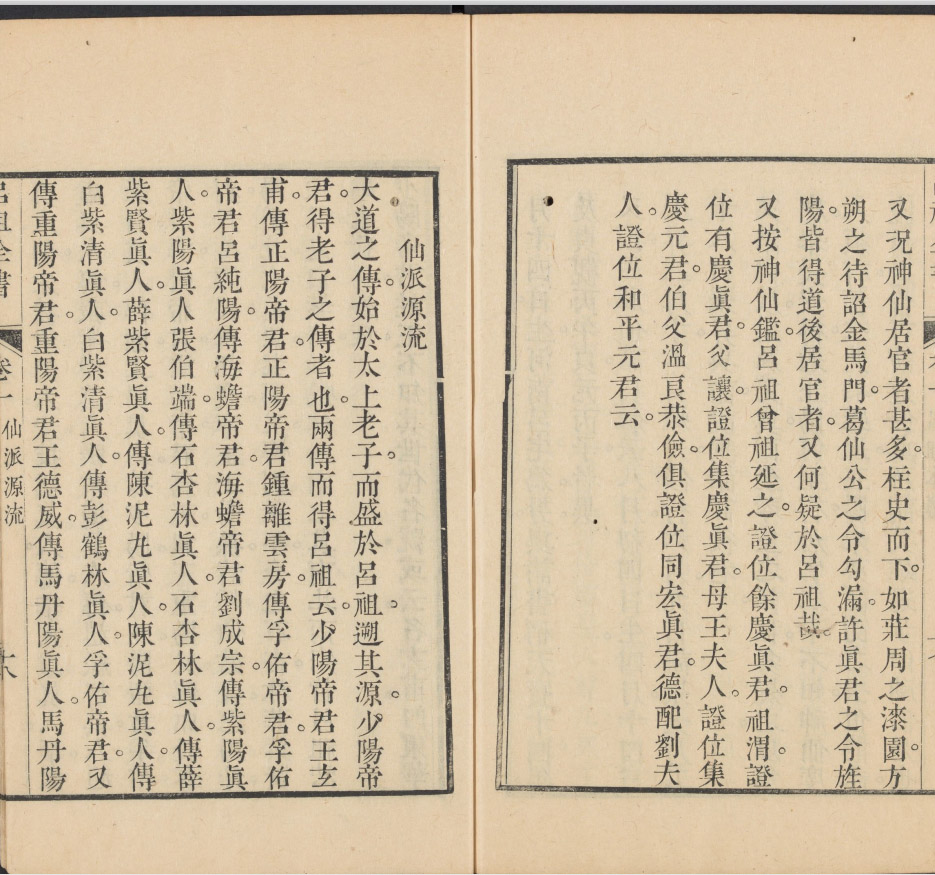 又况神仙居官者甚多。柱史而下。如莊周之漆園。方
朔之待詔金馬門。葛仙公之令勾漏。許眞君之令旌
陽。皆得道後居官者。又何疑於呂祖哉。
又按神仙鑑呂祖曾祖延之。證位餘慶眞君。祖渭證
位有慶眞君。父讓證位集慶眞君。母王夫人。證位集
慶元君。伯父溫良恭儉。俱證位同宏眞君。德配劉夫
人。證位和平元君云。
仙派源流
大道之傳。始於太上老子。而盛於呂祖。遡其源。少陽帝
君。得老子之傳者也。兩傳而得呂祖云。少陽帝君王玄
甫傳正陽帝君。正陽帝君鍾離雲房。傳孚佑帝君。孚佑
帝君呂純陽。傳海蟾帝君。海蟾帝君劉成宗。傳紫陽眞
人。紫陽眞人張伯端。傳石杏林眞人。石杏林眞人。傳薛
紫賢眞人。薛紫賢眞人。傳陳泥九眞人。陳泥九眞人。傳
白紫清眞人。白紫清眞人。傳彭鶴林眞人。孚佑帝君。又
傳重陽帝君。重陽帝君王德威。傳馬丹陽眞人。馬丹陽
呂祖全書
卷一 仙派源流